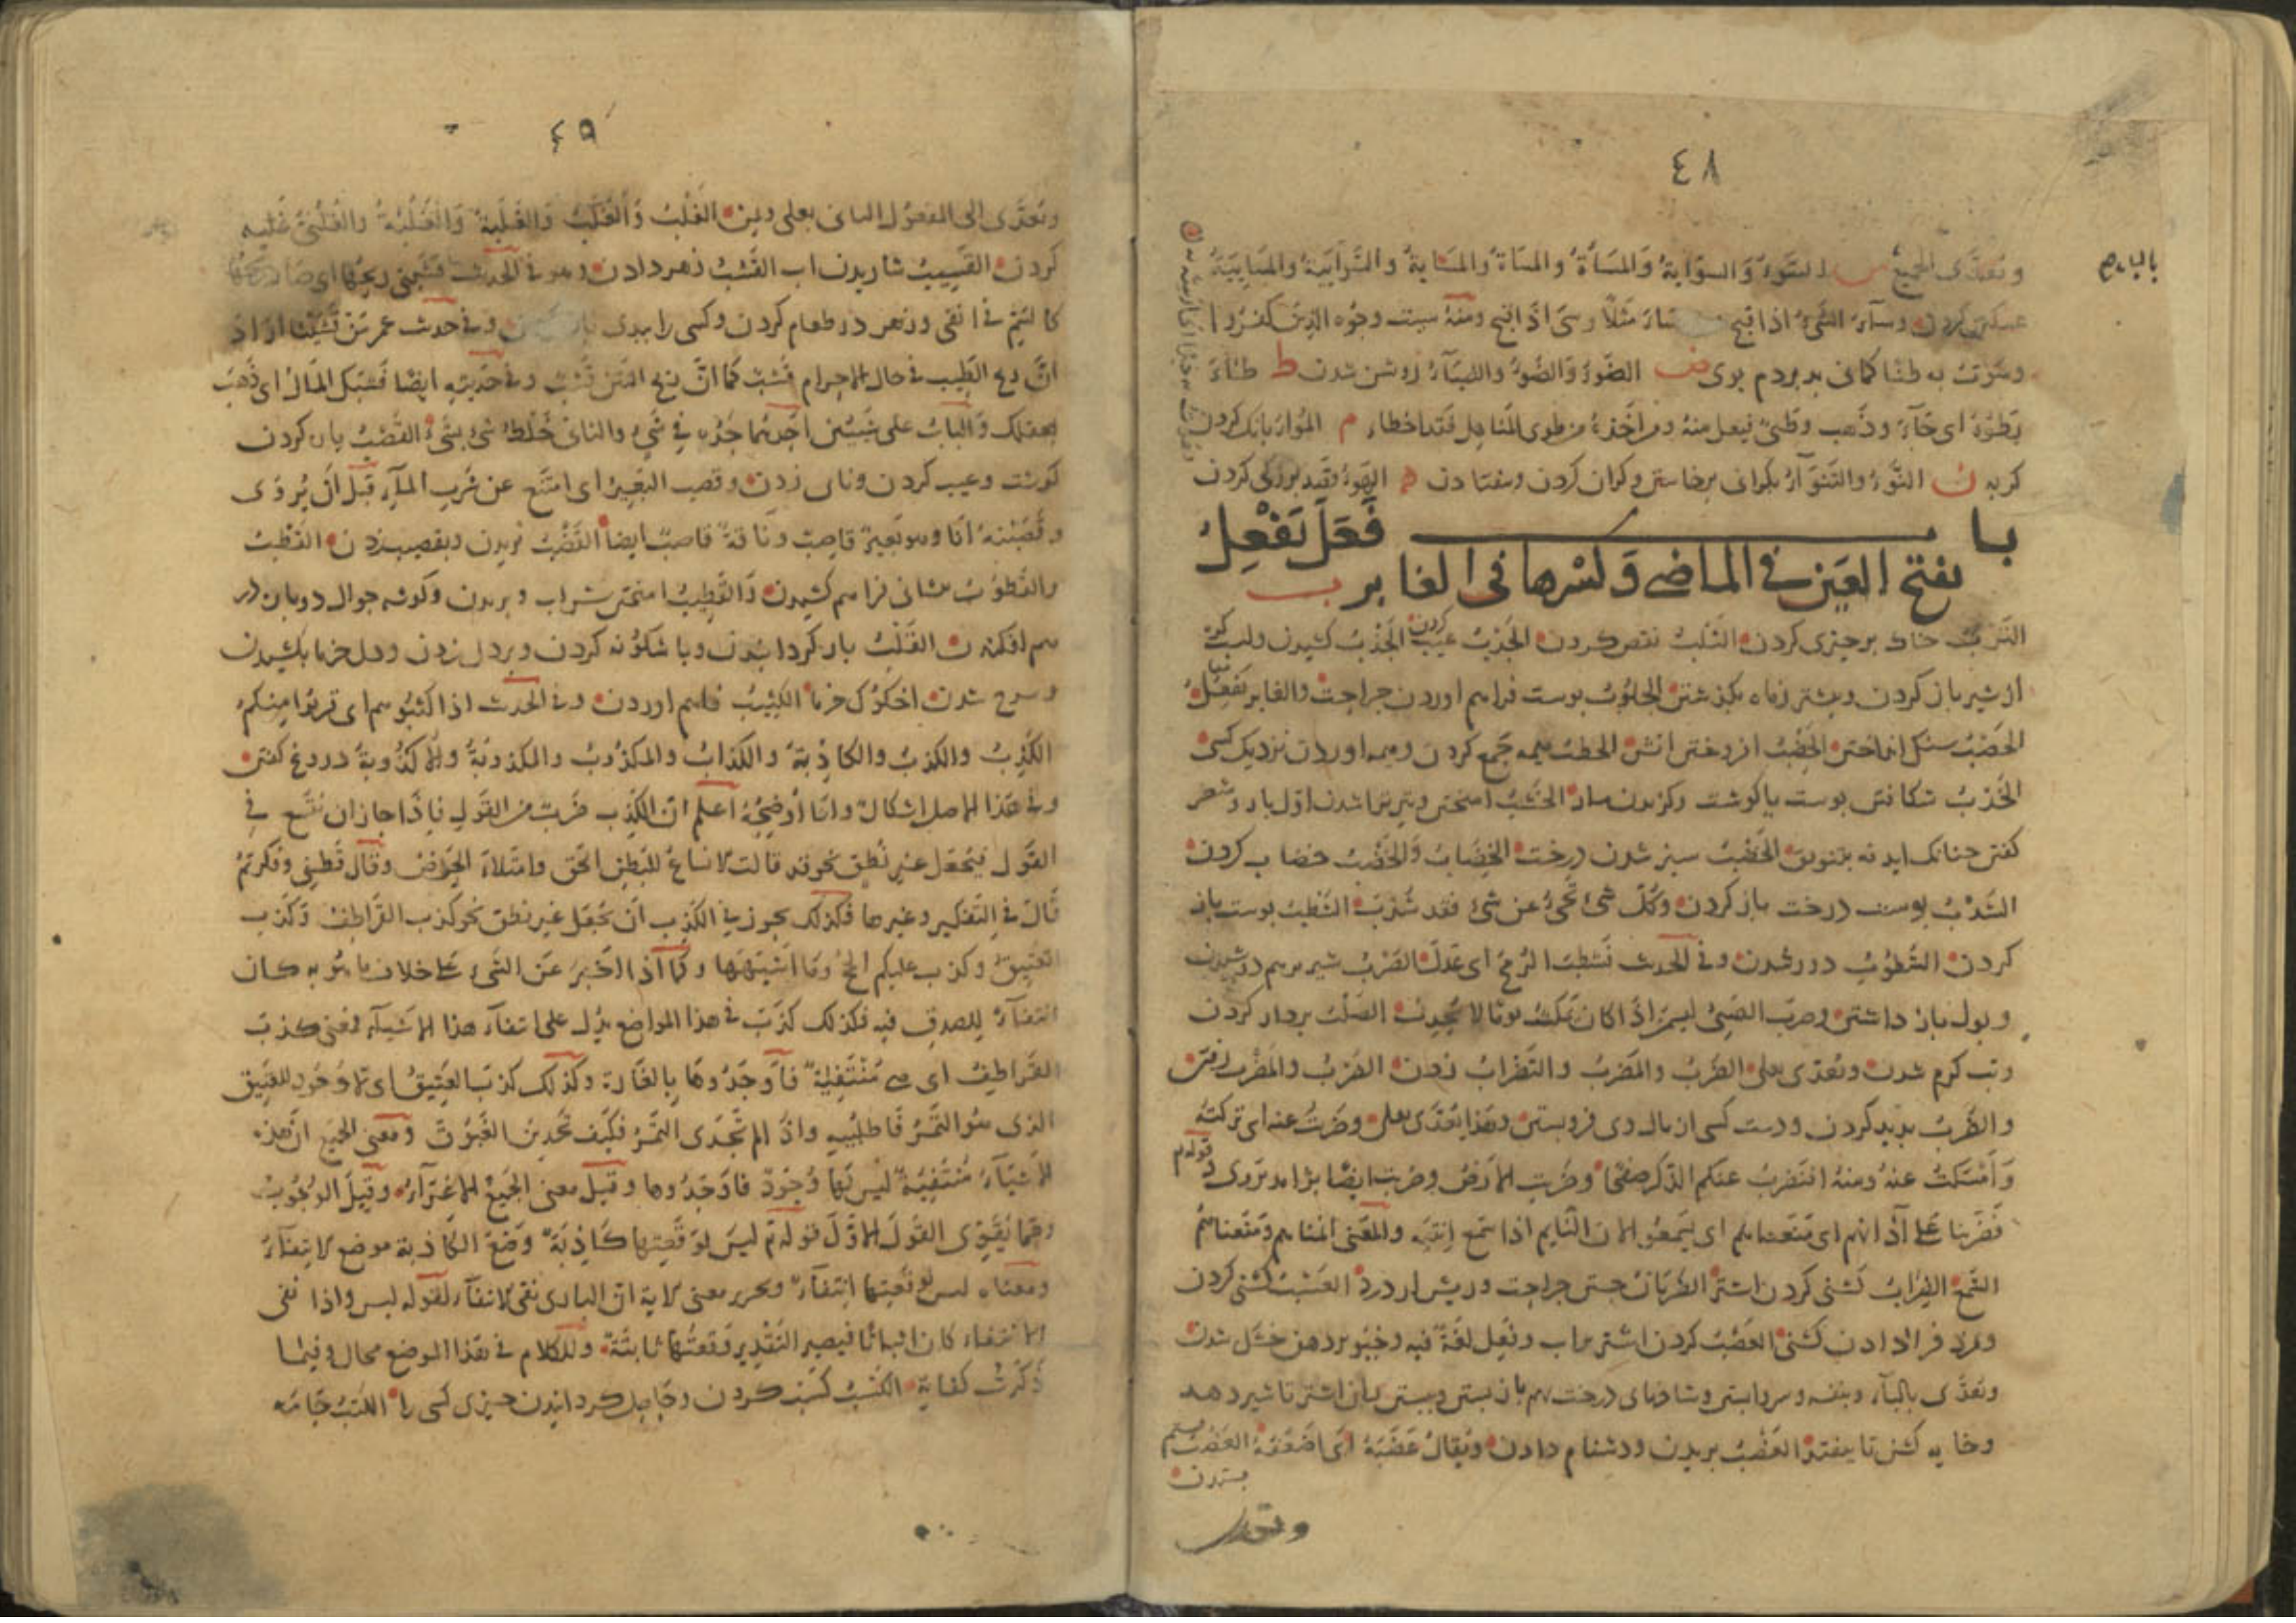 ٤٨
وتعدى الجميع س السوء والسوایة والمساءة والمسایة
بالباء م
كردن وساء الشیء اذا قبح ساء مثلا وسیء اذا قبح ومنه سیئت وجوه الذین كفروا
وسؤت به ظنا كمانی بد بردم بوی ض الضوء والضوء والضیاء روشن شدن ط طاء
یطوء ای جاء وذهب
كربه ن النوء والتنواء بكرانی برخاستن وكران كردن وبیفتادن ه الهوء قصد بزركی كردن
باب فعل یفعل
بفتح العین فی الماضی وكسرها فی الغابر ب
الترب خاك بر چیزی كردن الثلب نقص كردن الجدب عیب كردن الجذب كشیدن ولب كره
از شیر باز كردن وبیشتر زماه بكذشتن الجلوب پوست فراهم اوردن جراحت والغابر یفعل
الحصب سنك انداختن الحضب افروختن اتش الحطب هیمه جمع كردن وهیمه اوردن نزدیك كسی
الخدب شكافتن پوست یا كوشت وكزیدن مار الخشب امیختن وتیر تراشیدن اول بار وشعر
كفتن چنانك اید نه بتنوق الخضب سبز شدن درخت الخضاب والخضب خضاب كردن
الشذب پوست درخت باز كردن وكل شیء نحی عن شیء فقد شذب الشطب پوست باز
كردن الشطوب دور شدن وفی الحدیث فشطب الرمح ای عدل الضرب شیر بر هم دوشیدن
وبول باز داشتن وصرب الصبی لیسمن اذا كان یمكث یوما لا یحدث الصلب بر دار كردن
وتب كرم شدن وتعدى بعلى الضرب والمضرب والتضراب زدن الضرب والمضرب رفتن
والضرب پدید كردن ودست كسی از مال وی فرو بستن وهذا یتعدى بعلى وضربت عنه ای تركته
وامسكت عنه ومنه افنضرب عنكم الذكر صفحا وضربت الارض وضرب ایضا
قوله تم
فضربنا على آذانهم ای منعناهم ای یسمعوا لان النایم اذا سمع انتبه والمعنى انمناهم ومنعناهم
السمع الضراب كشنی كردن اشتر الضربان جستن جراحت وریش از درد العسب كشنی كردن
ومزد فرا دادن كشنی العصب كردن اشتر براب وفعل لغة فیه وخیو بر دهن خشك شدن
وتعدى بالباء وبنفسه وسر وا بستن وشاخهای درخت بهم باز بستن وبستن ران اشتر تا شیر دهد
وخایه كشن تا بیفتد العضب بریدن ودشنام دادن ویقال عضبه ای اضعفه الغصب بستم
بستدن
وتعدى
٤٩
وتعدى الى المفعول الثانی بعلى ومن الغلب والغلب والغلبة والغلبة والغلبی غلبه
كردن القسیب شاریدن اب القشب زهر دادن وهو فی الحدیث قشبنی ریحها
كالسم فی انفی وزهر در طعام كردن وكسی را ببدی وفی حدیث عمر من قشبنا اراد
ان ریح الطیب فی حال الاحرام قشب كما ان ریح النتن قشب وفی حدیثه ایضا قشبك المال ای ذهب
بعقلك والباب على شیئین احدهما جده فی شیء والثانی خلط شیء بشیء القصب پاره كردن
كوشت وعیب كردن ونای زدن وقصب البعیر ای امتنع عن شرب الماء قبل ان یروى
وقصبته انا وهو بعیر قاصب وناقة قاصب ایضا القضب بریدن وبقضیب زدن القطب
والقطوب پیشانی فراهم كشیدن والقطب امیختن شراب وبریدن وكوشه جوال دو بار در
هم افكندن القلب باز كردانیدن وباشكونه كردن وبر دل زدن ودل خرما بكشیدن
وسرخ شدن اخكوك خرما الكثب فاهم اوردن وفی الحدیث اذا كثبوهم ای قربوا منكم
الكذب والكذب والكاذبة والكذاب والمكذوب والمكذوبة والاكذوبة دروغ كفتن
وفی هذا الاصل اشكال وانا اوضحه اعلم ان الكذب ضرب من القول فاذا جاز ان یتسع فی
القول فیجعل غیر نطق نحو قد قالت الانساع للبطن الحق وامتلاء الحوض وقال قطنی
قال فی التفكیر وغیرها فكذلك یجوز فی الكذب ان یجعل غیر نطق نحو كذب القراطف وكذب
العتیق وكذب علیكم الحج وما اشبهها وكما اذا اخبر عن الشیء على خلاف ما هو به كان
انتفاء للصدق فیه فكذلك كذب فی هذا المواضع یدل على انتفاء هذا الاشیاء فمعنى كذب
القراطف ای هی منتفیة فاوجدوها بالغارة وكذلك كذب العتیق ای لا وجود للعتیق
الذی هو التمر فاطلبیه واذا لم تجدی التمر فكیف تجدین الغبوق ومعنى الجمیع ان هذه
الاشیاء منتفیة لیس لها وجود فاوجدوها وقیل معنى الجمیع الاغراء وقیل الوجوب
ومما یقوی القول الاول قوله تم لیس لوقعتها كاذبة وضع الكاذبة موضع لانتفاء
ومعناه لیس لوقعتها انتفاء وتحریر معنى لایة ان الباری نفى لانتفاء بقوله لیس واذا نفى
الانتفاء كان اثباتا فیصیر التقدیر وقعتها ثابتة وللكلام فی هذا الموضع مجال وفیما
ذكرت كفایة الكسب كسب كردن وحاصل كردانیدن چیزی كسی را